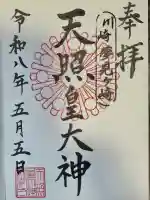 奉拝
天照皇大神
令和八年五月五日